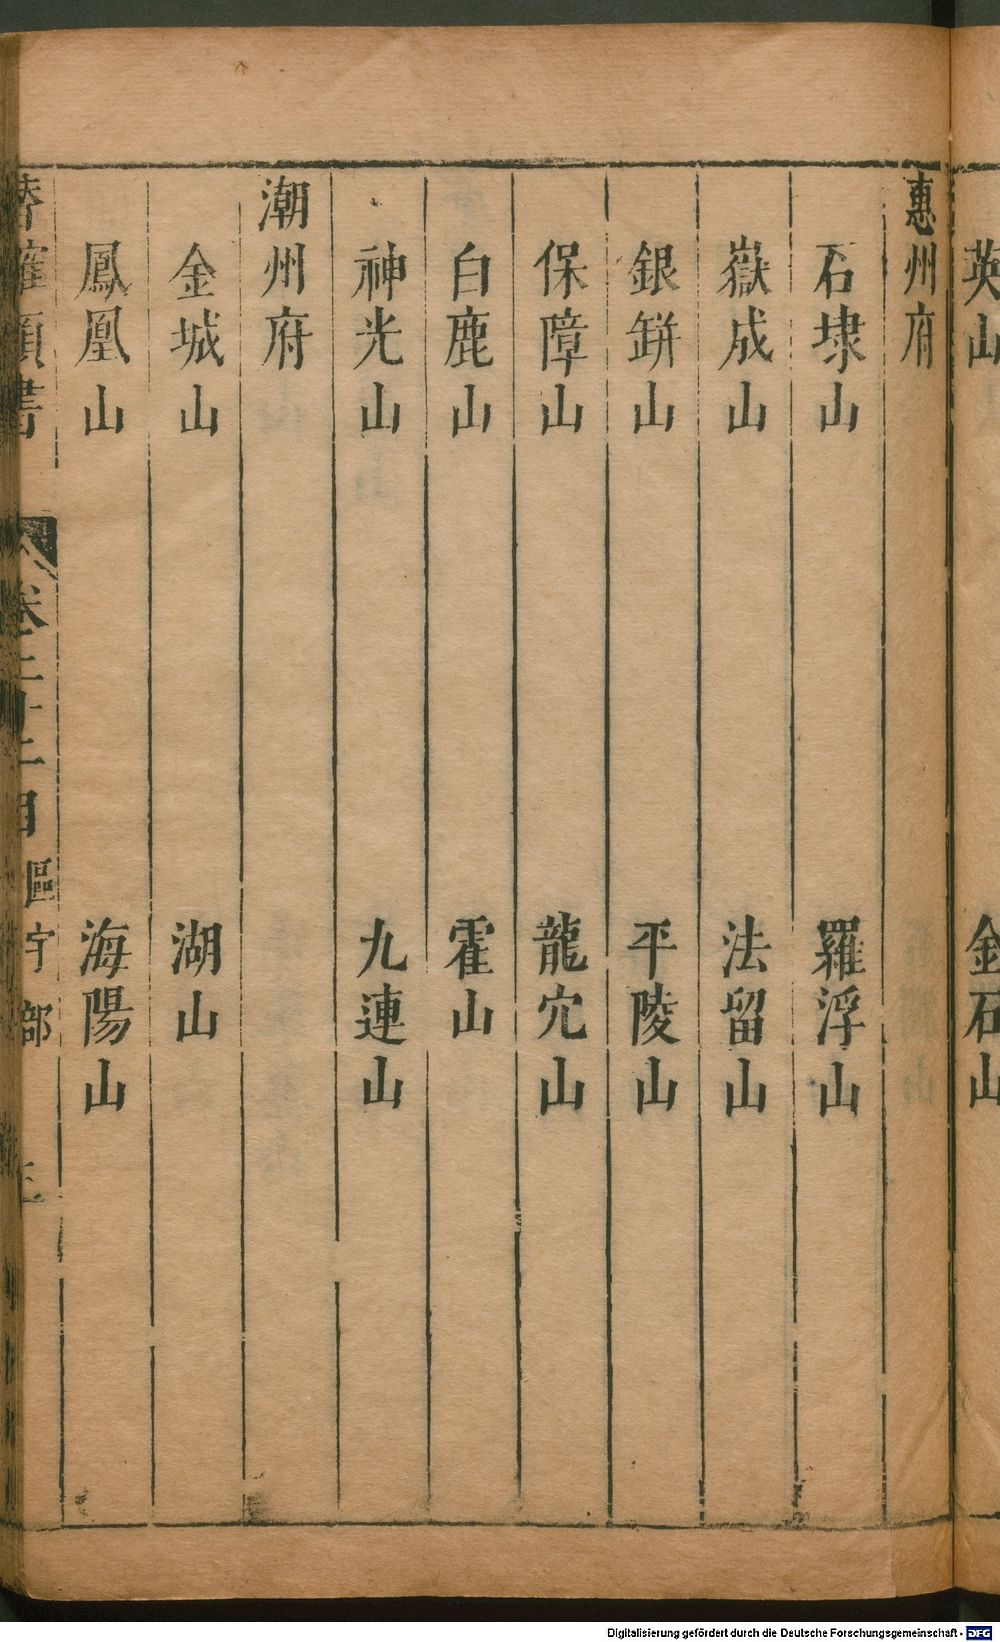 英山 金石山
惠州府
石埭山 羅浮山
嶽成山 法留山
銀缾山 平陵山
保障山 龍穴山
白鹿山 霍山
神光山 九連山
潮州府
金城山 湖山
鳳凰山 海陽山
潛確類書 卷二十二目 區宇部 三
Digitalisierung gefördert durch die Deutsche Forschungsgemeinschaft - DFG